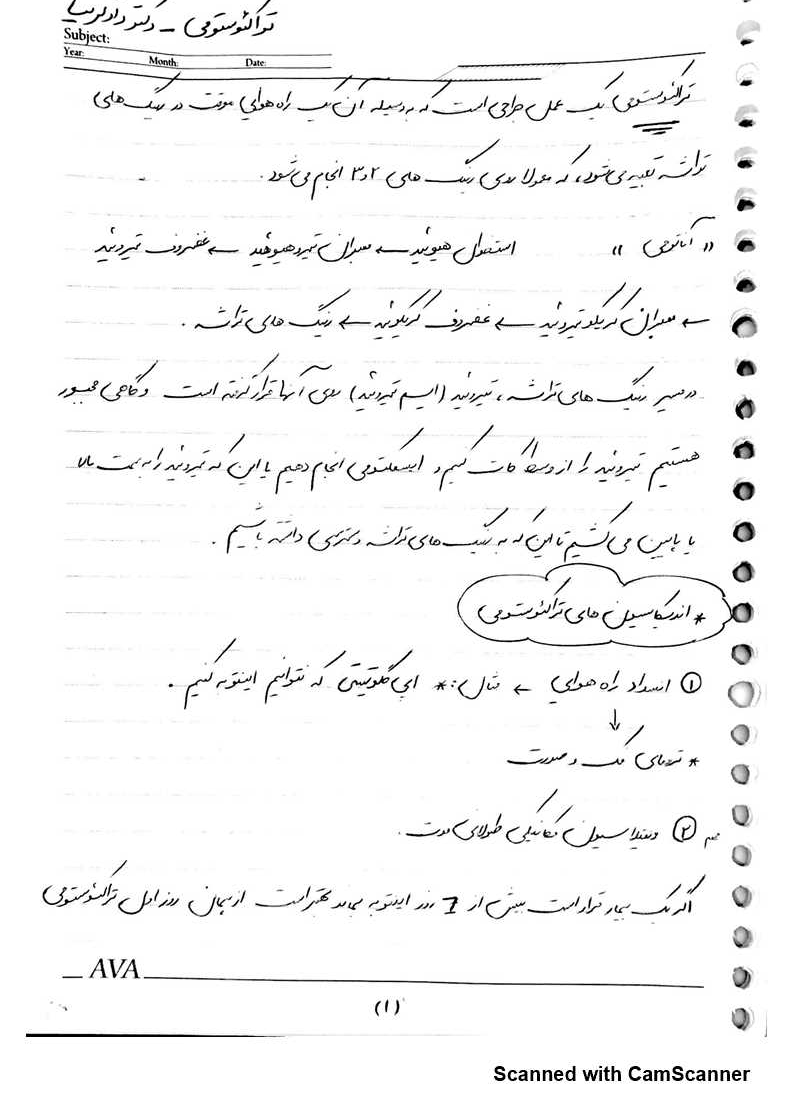 تراکئوستومی - دکتر دادگرنیا
Subject:
Year: Month: Date:
تراکئوستومی یک عمل جراحی است که به وسیله آن یک راه هوایی موقت در رینگ های
تراشه تعبیه می‌شود، که معمولا روی رینگ های ۲ و ۳ انجام می‌شود.
« آناتومی » استخوان هیوئید ← ممبران تیروهیوئید ← غضروف تیروئید
← ممبران کریکوتیروئید ← غضروف کریکوئید ← رینگ های تراشه.
در مسیر رینگ های تراشه، تیروئید (ایسم تیروئید) روی آنها قرار گرفته است و گاهی مجبور
هستیم تیروئید را از وسط کات کنیم و ایسمکتومی انجام دهیم یا این که تیروئید را به سمت بالا
یا پایین می کشیم تا این که به رینگ های تراشه دسترسی داشته باشیم.
* اندیکاسیون های تراکئوستومی
① انسداد راه هوایی ← مثال: * اپی گلوتیتی که نتوانیم اینتوبه کنیم.
↓
* ترومای فک و صورت
مهم ② ونتیلاسیون مکانیکی طولانی مدت.
اگر یک بیمار قرار است بیش از 7 روز اینتوبه بماند بهتر است از همان روز اول تراکئوستومی
AVA
(۱)
Scanned with CamScanner